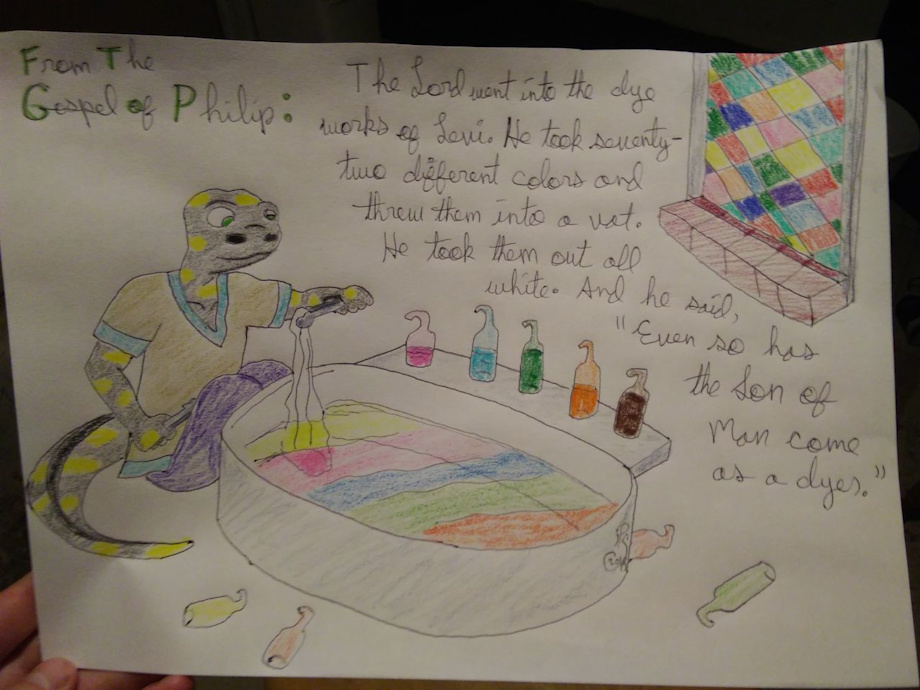 From The
Gospel of Philip:
The Lord went into the dye
works of Levi. He took seventy-
two different colors and
threw them into a vat.
He took them out all
white. And he said,
"Even so has
the Son of
Man come
as a dyer."